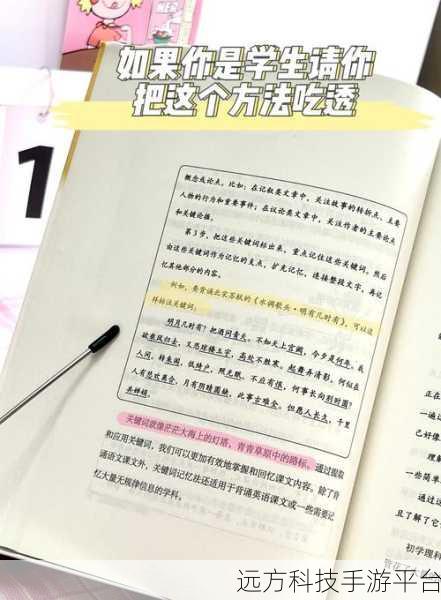 如果你是学生请你
把这个方法吃透
1
概念或论点。比如：在记叙类文章中，关注故事的转折点、主要
人物的行为和重要事件；在议论类文章中，关注作者的主要论点
和关键论据。
第3步，把这些关键词标出来，重点记住这些关键词，然后
由这些关键词作为记忆的支点，扩充记忆，连接整段文字，再记
忆其他部分的内容。
例如，要背诵北宋苏轼的《水调歌头·明月几时有》，可以这
样标注关键词：
明月几时有？把酒问青天。不知天上宫阙，今夕是何年。我
欲乘风归去，又恐琼楼玉宇，高处不胜寒。起舞弄清影，何似在
人间。转朱阁，低绮户，照无眠。不应有恨，何事长向别时圆？
人有悲欢离合，月有阴晴圆缺，此事古难全。但愿人长久，千里
共婵娟。
关键词就像茫茫大海上的灯塔，青青草原中的路标。通过提取
和应用关键词，我们可以更加有效地掌握和回忆课文内容。除了背
诵语文课文外，关键词记忆法还适用于背诵英语课文或一些需要记
忆大量无规律信息的学科。
也
已好像
理解
一些简单
通过
且了解了它
初学理科
远方科技手游平台